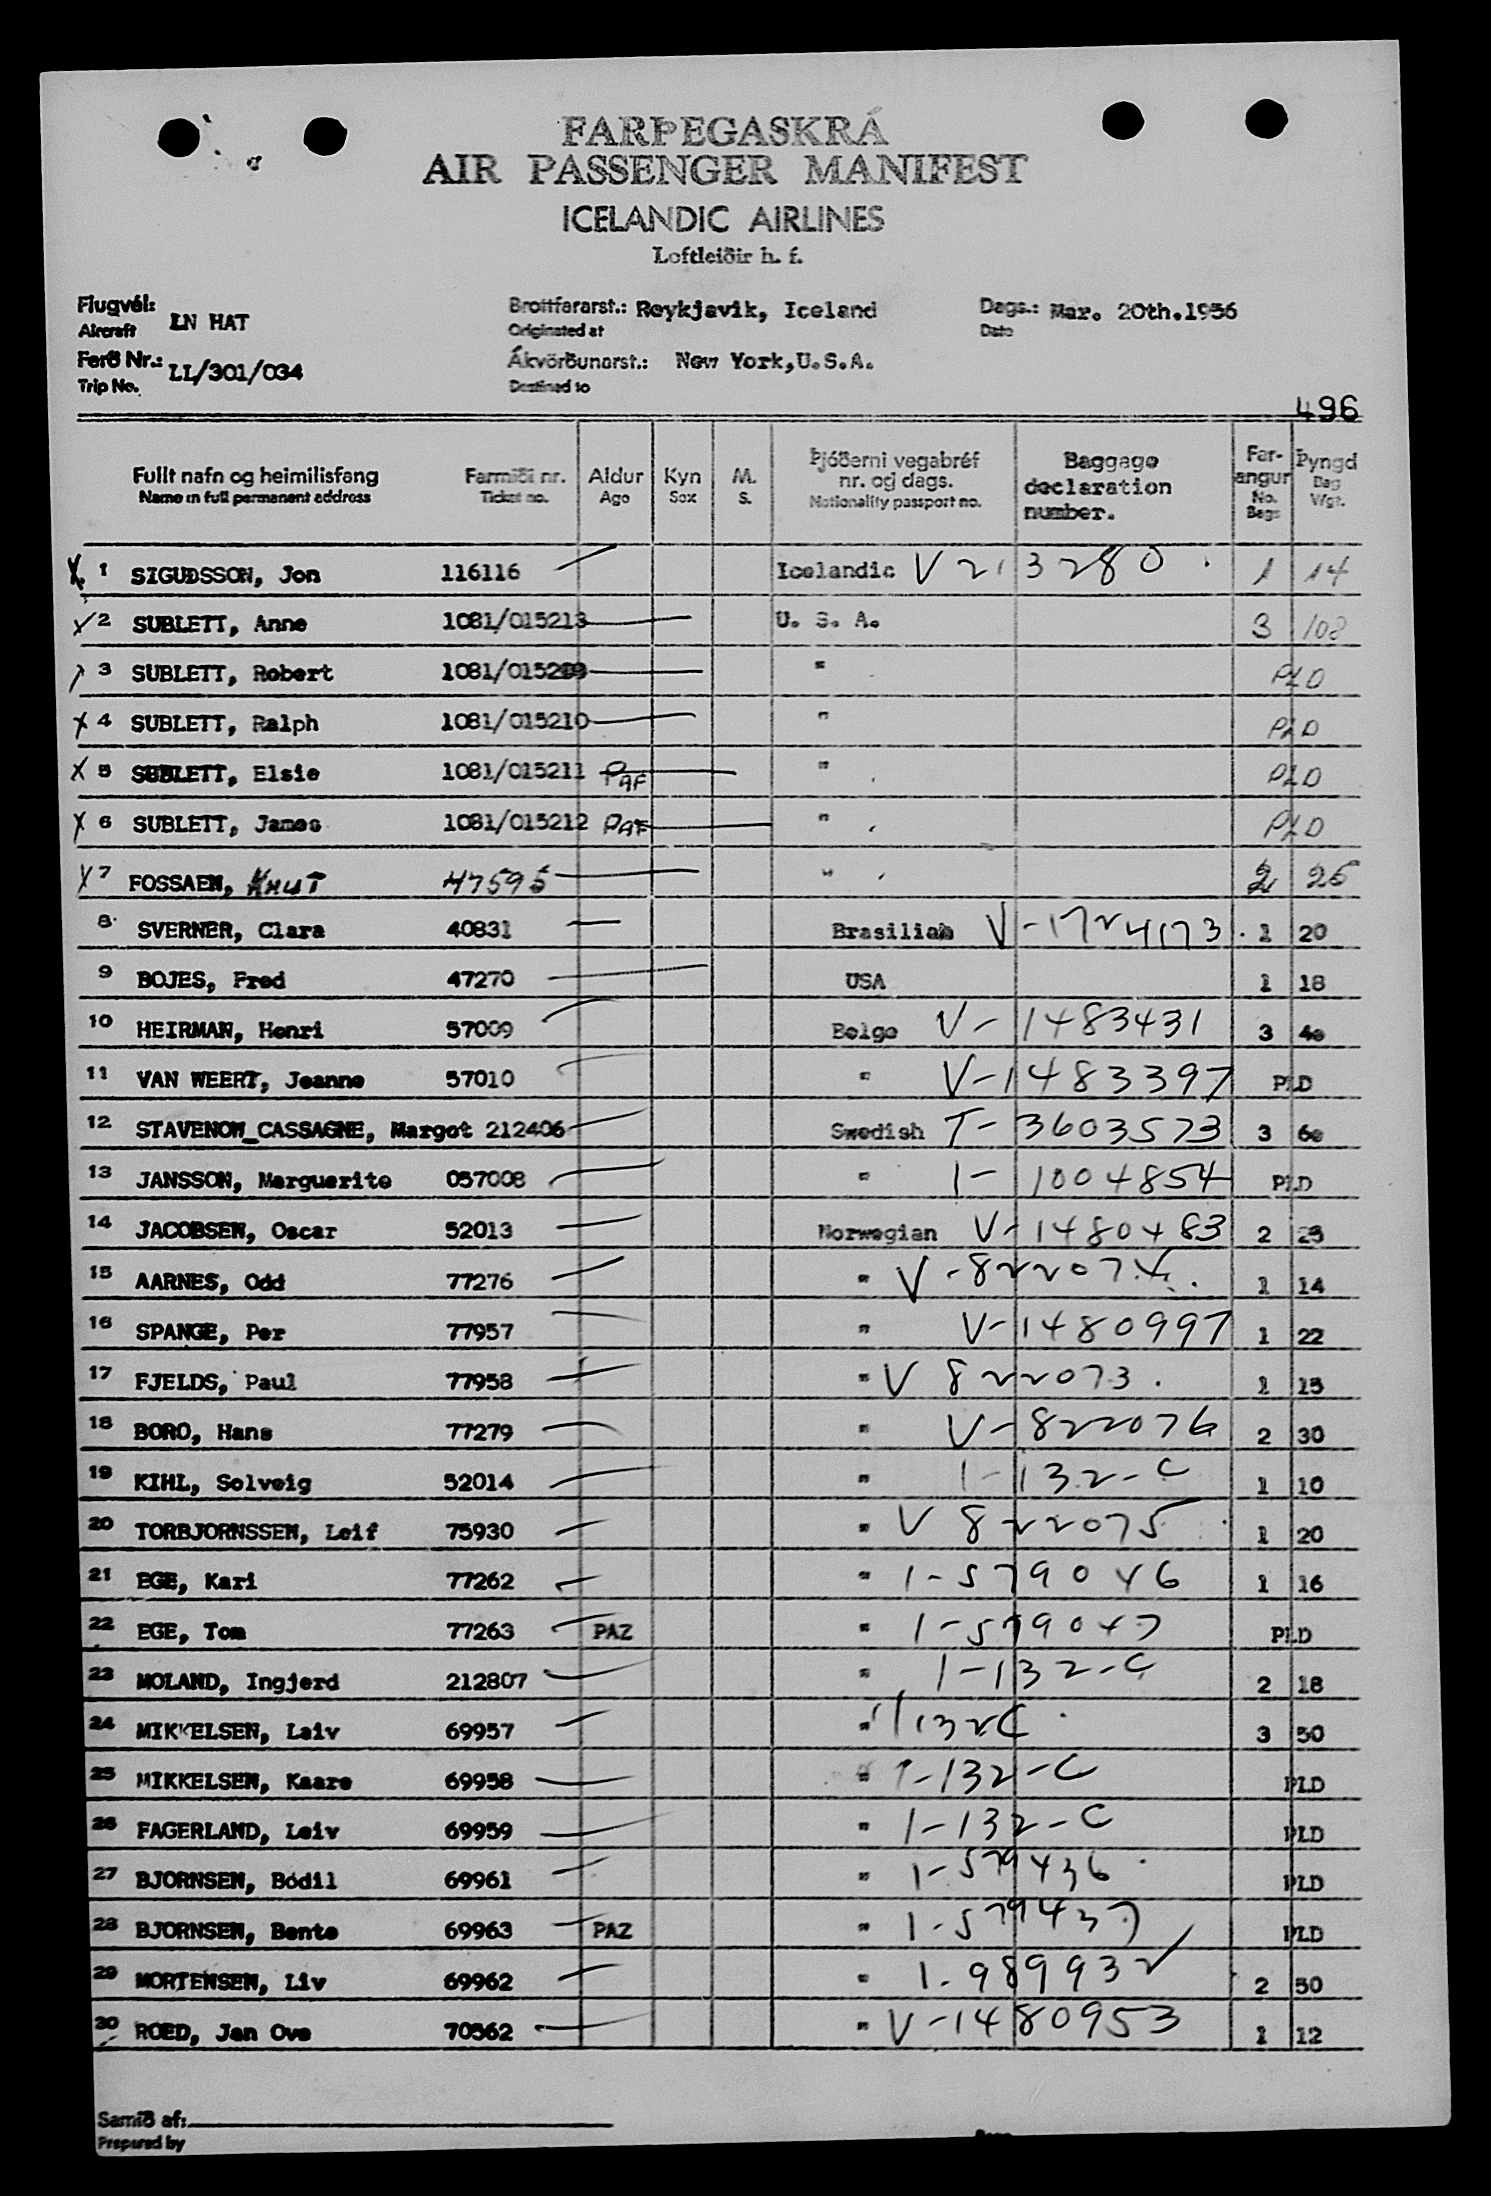 FARÞEGASKRÁ
AIR PASSENGER MANIFEST
ICELANDIC AIRLINES
Loftleiðir h. f.
Flugvél: LN HAT Brottfararst.: Reykjavik, Iceland Dags.: Mar. 20th.1956
Aircraft Originated at Date
Ferð Nr.: LL/301/034 Ákvörðunarst.: New York,U.S.A.
Trip No. Destined to
496
Fullt nafn og heimilisfang Farmiði nr. Aldur Kyn M. Þjóðerni vegabréf nr. og dags. Baggage declaration number. Far-angur Þyngd
Name in full permanent address Ticket no. Age Sex S. Nationality passport no. No. Bags Bag Wgt.
X 1 SIGUDSSON, Jon 116116 Icelandic V 213280 1 14
X 2 SUBLETT, Anne 1081/015213 U. S. A. 3 108
3 SUBLETT, Robert 1081/015209 " PLD
X 4 SUBLETT, Ralph 1081/015210 " PLD
X 5 SUBLETT, Elsie 1081/015211 PAF " PLD
X 6 SUBLETT, James 1081/015212 PAF " PLD
X 7 FOSSAEN, KNUT 47595 " 2 26
8 SVERNER, Clara 40831 Brasilian V-1724173 1 20
9 BOJES, Fred 47270 USA 1 18
10 HEIRMAN, Henri 57009 Belge V-1483431 3 40
11 VAN WEERT, Jeanne 57010 " V-1483397 PLD
12 STAVENOW_CASSAGNE, Margot 212406 Swedish T-3603573 3 60
13 JANSSON, Marguerite 057008 " 1-1004854 PLD
14 JACOBSEN, Oscar 52013 Norwegian V-1480483 2 25
15 AARNES, Odd 77276 " V-822074 1 14
16 SPANGE, Per 77957 " V-1480997 1 22
17 FJELDS, Paul 77958 " V 822073 1 15
18 BORO, Hans 77279 " V-822076 2 30
19 KIHL, Solveig 52014 " 1-132-C 1 10
20 TORBJORNSSEN, Leif 75930 " V 822075 1 20
21 EGE, Kari 77262 " 1-579046 1 16
22 EGE, Tom 77263 PAZ " 1-579047 PLD
23 MOLAND, Ingjerd 212807 " 1-132-C 2 18
24 MIKKELSEN, Laiv 69957 " 1132C 3 50
25 MIKKELSEN, Kaare 69958 " 1-132-C PLD
26 FAGERLAND, Leiv 69959 " 1-132-C PLD
27 BJORNSEN, Bodil 69961 " 1-579436 PLD
28 BJORNSEN, Bente 69963 PAZ " 1-579437 PLD
29 MORTENSEN, Liv 69962 " 1-989932 2 50
30 ROED, Jan Ove 70562 " V-1480953 1 12
Samið af:
Prepared by